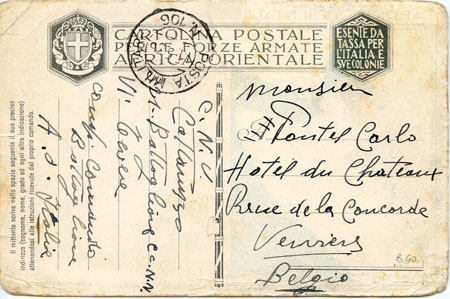 CARTOLINA POSTALE
PER LE FORZE ARMATE
AFRICA ORIENTALE
ESENTE DA
TASSA PER
L'ITALIA E
SVE COLONIE
POSTA MILITARE N. 106
Il mittente scriva nello spazio seguente il suo preciso
indirizzo (cognome, nome, grado ed ogni altra indicazione)
attenendosi alle istruzioni ricevute dal proprio comando.
Comp. Comando
Battaglione
A. S. Italia
C. N. V.
Battaglione CC. NN.
Monsieur
Pontel Carlo
Hotel du Chateau
Rue de la Concorde
Verviers
Belgio